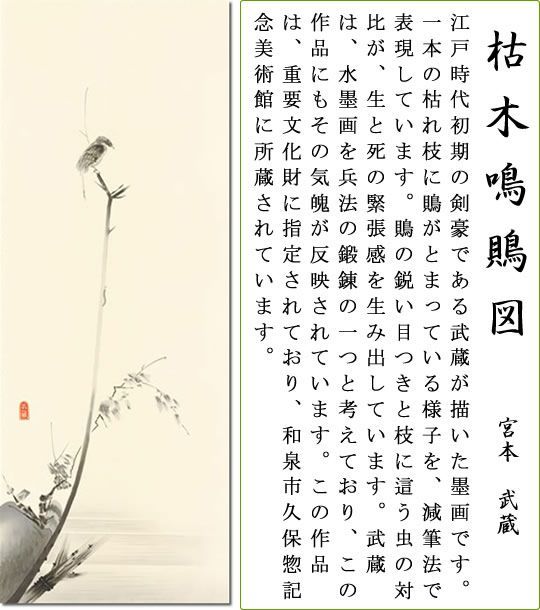 枯木鳴鵙図
宮本 武蔵
江戸時代初期の剣豪である武蔵が描いた墨画です。
一本の枯れ枝に鵙がとまっている様子を、減筆法で
表現しています。鵙の鋭い目つきと枝に這う虫の対
比が、生と死の緊張感を生み出しています。武蔵
は、水墨画を兵法の鍛錬の一つと考えており、この
作品にもその気魄が反映されています。この作品
は、重要文化財に指定されており、和泉市久保惣記
念美術館に所蔵されています。